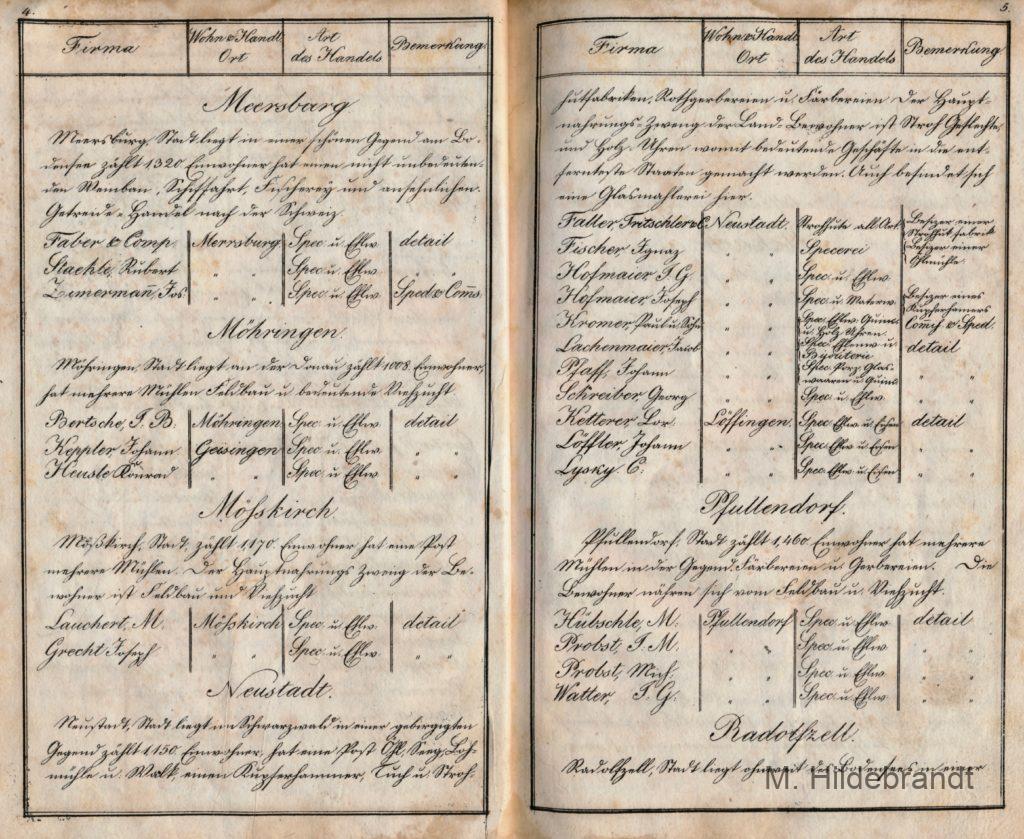 4.
Firma Wohn & Handl. Ort Art des Handels Bemerkung.
Meersburg
Meersburg, Stadt liegt in einer schönen Gegend am Bo-
densee zählt 1320 Einwohner hat einen nicht unbedeuten-
den Weinbau, Schiffahrt, Fischerey und ansehnlichen
Getreide-Handel nach der Schweiz.
Faber & Comp. Meersburg Spec. u. Ehlw. detail
Staehle, Rubert " " Spec. u. Ehlw. " "
Zimermañ, Jos. " " Spec. u. Ehlw. Sped. & Coms.
Möhringen.
Möhringen, Stadt liegt an der Donau zählt 1008 Einwohner,
hat mehrere Mühlen Feldbau u. bedeutende Viehzucht
Bertsche, J. B. Möhringen Spec. u. Ehlw. detail
Keppler Johann Geisingen Spec. u. Ehlw. " "
Heusle Konrad " " Spec. u. Ehlw. " "
Mösskirch.
Mößkirch, Stadt, zählt 1,170. Einwohner hat eine Post
mehrere Mühlen. Der Hauptnahrungs Zweig der Be-
wohner ist Feldbau und Viehzucht
Lauchert, M. Mösskirch Spec. u. Ehlw. detail
Grecht Joseph " " Spec. u. Ehlw. " "
Neustadt.
Neustadt, Stadt liegt im Schwarzwald in einer gebirgigten
Gegend zählt 1,150. Einwohner, hat eine Post Öhl, Seeg, Loh-
mühle u. Walk, einen Kupferhammer, Tuch u. Stroh-
5.
Firma Wohn & Handl. Ort Art des Handels Bemerkung
hutfabriken, Rothgerbereien u. Färbereien Der Haupt-
nahrungs-Zweig der Land-Bewohner ist Stroh Geflechte,
und Holz-Uhren womit bedeutende Geschäfte in die ent-
fernteste Staaten gemacht werden. Auch befindet sich
eine Glasmahlerei hier.
Faller, Tritschler & C. Neustadt. Strohhüte all. Art Besizer einer Strohhut fabrik
Fischer, Ignaz " " Specerei Besizer einer Öhlmühle.
Hofmaier J. G. " " Spec. u. Ehlw.
Hofmaier, Joseph " " Spec. u. Materw. Besizer eines Kupferhamers
Kromer, Paul u. Sohn " " Spec. Ehlw. Quinc. u. Holz Uhren. Comis. & Sped.
Lachenmaier, Jakob " " Spec. Ehlenw. u. Bijouterie detail
Pfaff, Johann " " Spec. Porz. Glas- waaren u. Quinc. " "
Schreiber Georg " " Spec. u. Ehlw. " "
Ketterer Lor. Löffingen. Spec. Ehlw. u. Eisen detail
Löffler, Johann " " Spec. Ehlw. u. Eisen " "
Lysky. C. " " Spec. Ehlw. u. Eisen " "
Pfullendorf.
Pfullendorf, Stadt zählt 1,460. Einwohner hat mehrere
Mühlen in der Gegend, Färbereien u. Gerbereien. Die
Bewohner nähren sich vom Feldbau u. Viehzucht.
Hübschle, M. Pfullendorf Spec. u. Ehlw. detail
Probst, J. M. " " Spec. u. Ehlw. " "
Probst, Mich. " " Spec. u. Ehlw. " "
Walter, J. G. " " Spec. u. Ehlw. " "
Radolfzell.
Radolfzell, Stadt liegt ohnweit des Bodensees in einer
M. Hildebrandt